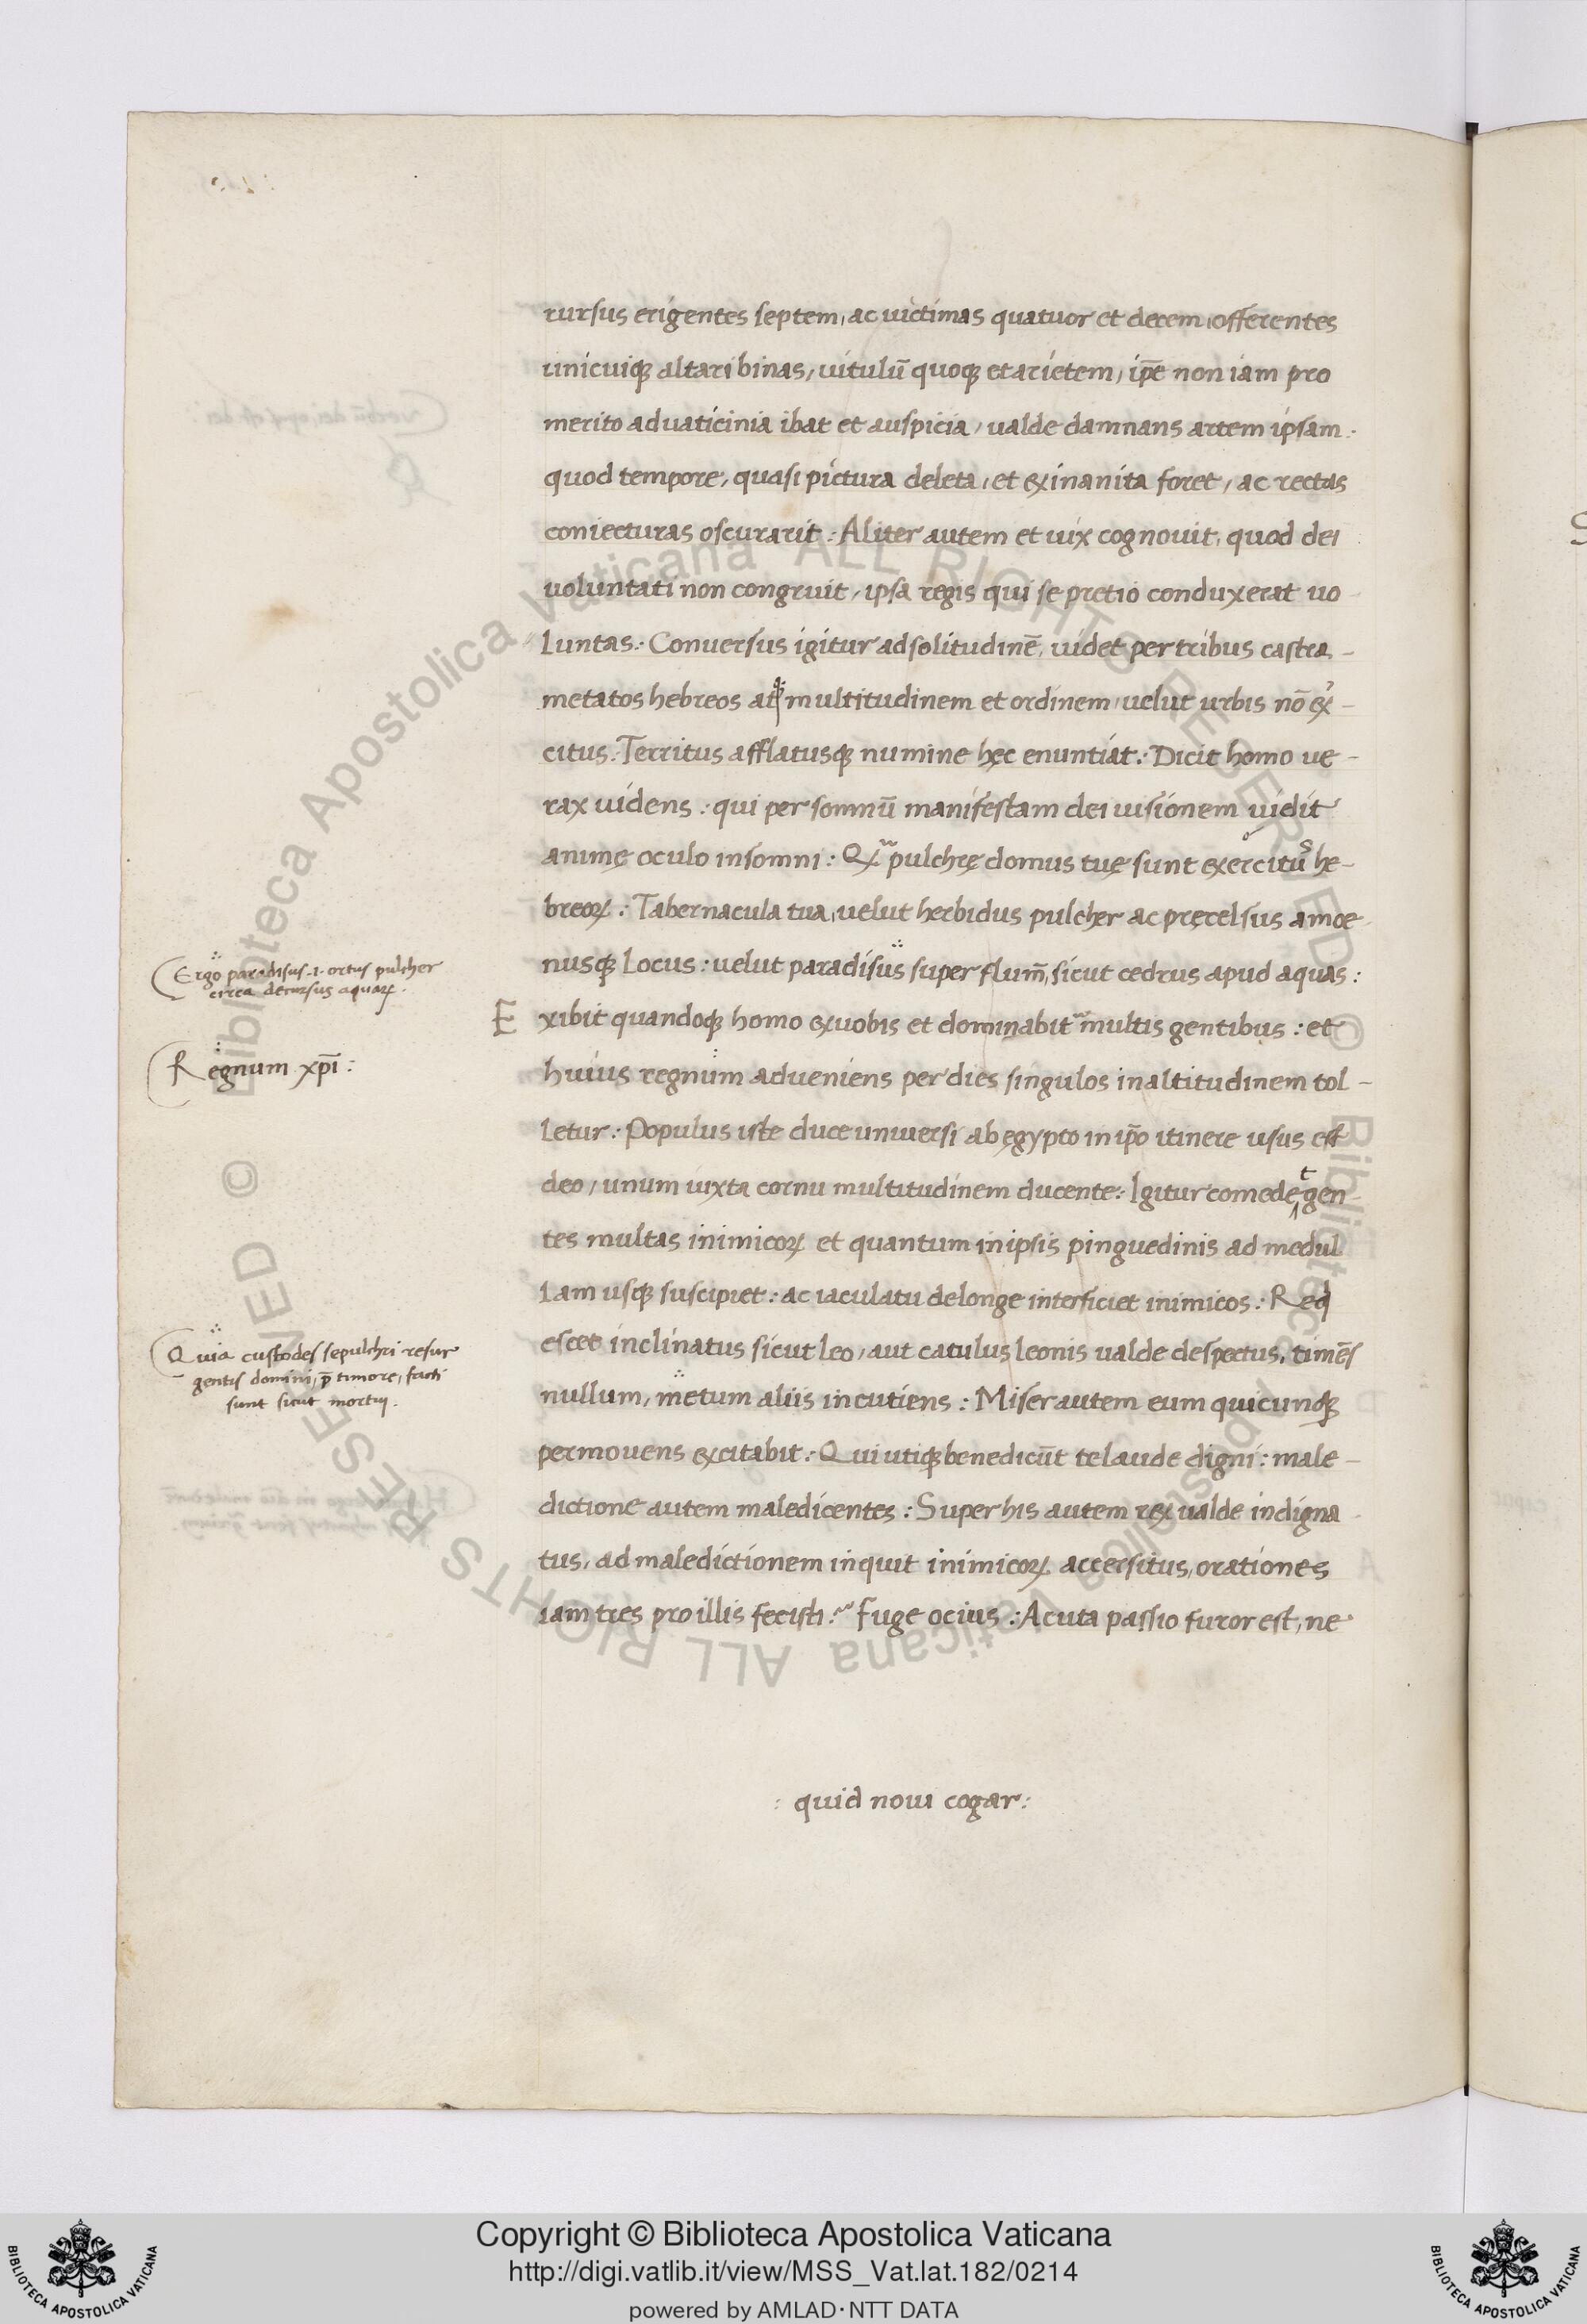 rursus erigentes septem, ac uictimas quatuor et decem, offerentes
unicuiqꝫ altari binas, uitulū quoqꝫ et arietem, ip̄e non iam pro
merito ad uaticinia ibat et auspicia, ualde damnans artem ipsam.
quod tempore, quasi pictura deleta, et exinanita foret, ac rectas
coniecturas oscurarit: Aliter autem et uix cognouit, quod dei
uoluntati non congruit, ipsa regis qui se pretio conduxerat uo
luntas: Conuersus igitur ad solitudinē, uidet per tribus castra-
metatos hebreos atqꝫ multitudinem et ordinem, uelut urbis nō ex-
citus: Territus afflatusqꝫ numine hęc enuntiat: Dicit homo ue-
rax uidens: qui per somnū manifestam dei uisionem uidit
animę oculo insomni: Q̃ pulchrę domus tuę sunt exercitus he-
breoꝝ: Tabernacula tua, uelut herbidus pulcher ac pręcelsus amoe
nusqꝫ locus: uelut paradisus super flum̄, sicut cedrus apud aquas:
Exibit quandoqꝫ homo ex uobis et dominabit multis gentibus: et
huius regnum adueniens per dies singulos in altitudinem tol-
letur: Populus iste duce uniuersi ab ęgypto in ip̄o itinere usus est
deo, unum iuxta cornu multitudinem ducente: Igitur comedet gen
tes multas inimicoꝝ et quantum in ipsis pinguedinis ad medul
lam usqꝫ suscipiet: ac iaculatu de longe interficiet inimicos: Reqͥ
escet inclinatus sicut leo, aut catulus leonis ualde despectus, timēs
nullum, metum aliis incutiens: Miser autem eum quicunqꝫ
permouens excitabit: Qui utiqꝫ benedicūt te laude digni: male-
dictione autem maledicentes: Super his autem rex ualde indigna
tus, ad maledictionem inquit inimicoꝝ accersitus, orationes
iam tres pro illis fecisti: Fuge ocius: Acuta passio furor est, ne
: quid noui cogar:
Ergo paradisus .i. ortus pulcher
circa decursus aquaꝝ.
Regnum xp̄i:
Quia custodes sepulchri resur
gentis domini, p̄ timore, facti
sunt sicut mortui.
Copyright © Biblioteca Apostolica Vaticana
http://digi.vatlib.it/view/MSS_Vat.lat.182/0214
powered by AMLAD·NTT DATA
BIBLIOTECA APOSTOLICA VATICANA
BIBLIOTECA APOSTOLICA VATICANA
© Biblioteca Apostolica Vaticana ALL RIGHTS RESERVED
© Biblioteca Apostolica Vaticana ALL RIGHTS RESERVED